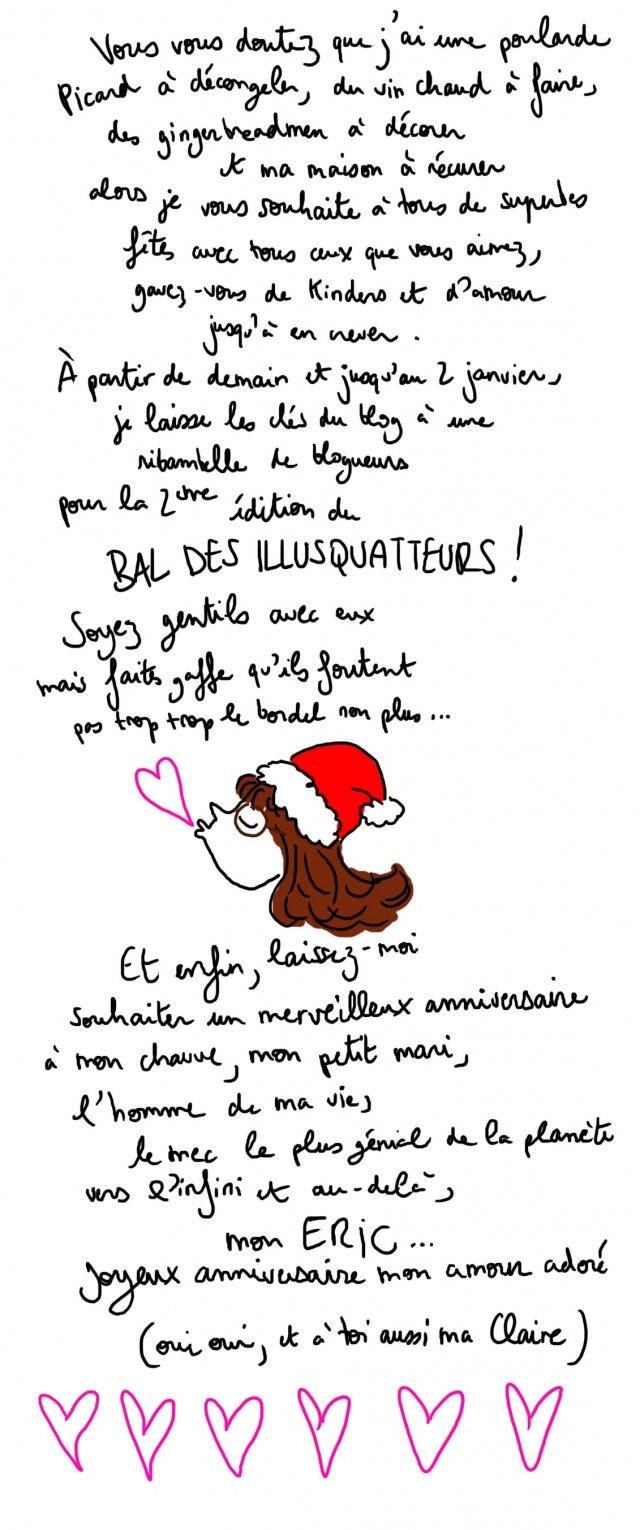 Vous vous doutez que j'ai une poularde
Picard à décongeler, du vin chaud à faire,
des gingerbreadmen à décorer
et ma maison à récurer
alors je vous souhaite à tous de superbes
fêtes avec tous ceux que vous aimez,
gavez-vous de Kinders et d'amour
jusqu'à en crever.
À partir de demain et jusqu'au 2 janvier,
je laisse les clés du blog à une
ribambelle de blogueurs
pour la 2ème édition du
BAL DES ILLUSQUATTEURS !
Soyez gentils avec eux
mais faites gaffe qu'ils foutent
pas trop trop le bordel non plus...
Et enfin, laissez-moi
souhaiter un merveilleux anniversaire
à mon chauve, mon petit mari,
l'homme de ma vie,
le mec le plus génial de la planète
vers l'infini et au-delà,
mon ERIC...
Joyeux anniversaire mon amour adoré
(oui oui, et à toi aussi ma Claire)